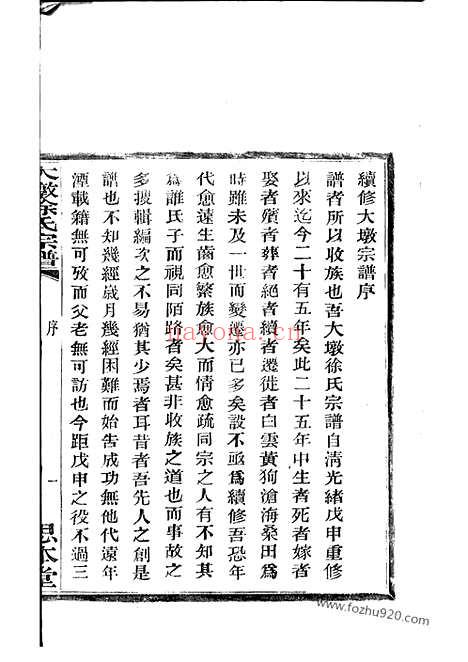 續修大墩宗譜序
譜者所以收族也吾大墩徐氏宗譜自淸光緖戊申重修
以來迄今二十有五年矣此二十五年中生者死者嫁者
娶者殯者葬者絕者續者遷徙者白雲黃狗滄海桑田爲
時雖未及一世而變遷亦已多矣設不亟爲續修吾恐年
代愈遠生齒愈繁族愈大而情愈疏同宗之人有不知其
爲誰氏子而視同陌路者矣甚非收族之道也而事故之
多搜輯編次之不易猶其少焉者耳昔者吾先人之創是
譜也不知幾經歲月幾經困難而始告成功無他代遠年
湮載籍無可攷而父老無可訪也今距戊申之役不過三
大墩徐氏宗譜
序
一
思本堂
nayona.cn
www.fozhu920.com